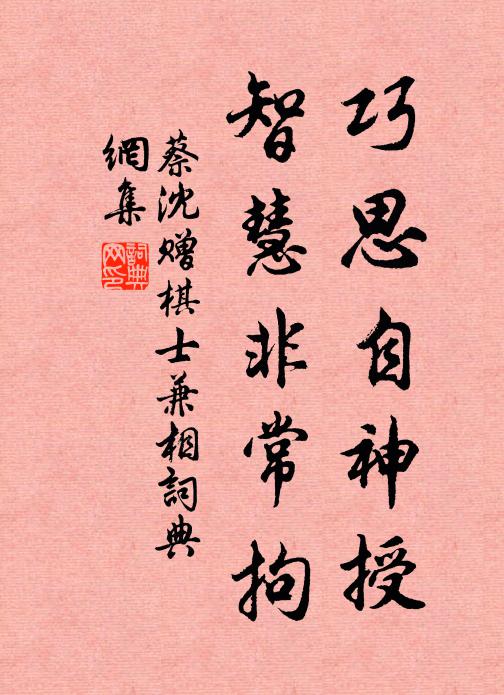 巧思自神授
智慧非常拘
蔡沈赠棋士兼相詞典
網集
詞典
网印